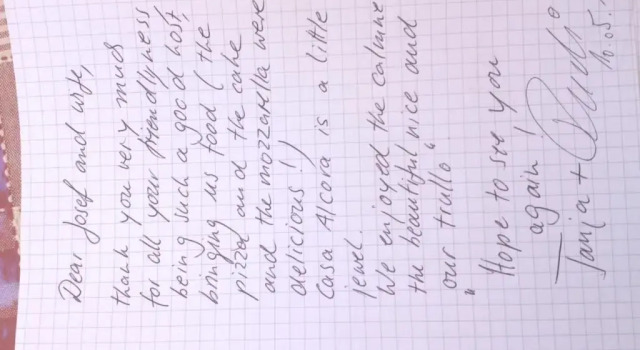 Dear Josef and wife,
thank you very much
for all your friendlyness
being such a good host,
bringing us food (the
pizza and the cake
and the mozzarella were
delicious!)
Casa Alcora is a little
jewel.
We enjoyed the calmne
the beautiful nice and
our trullo "
" Hope to see you
again!
Tanja +
10.05.